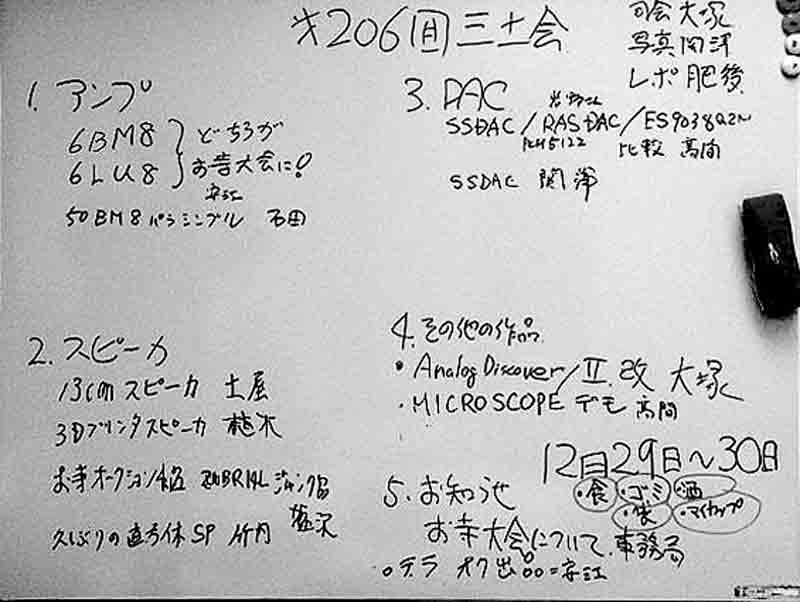 第206回三土会
司会 大塚
写真 関澤
レポ 肥後
1. アンプ
6BM8
6LU8
どちらが
お寺大会に!
安江
50BM8 パラシングル 石田
2. スピーカ
13cm スピーカ 土屋
3Dプリンタスピーカ 植木
お寺オークション
ジャンク
塩沢
久しぶりの直方体SP 竹内
3. DAC
SSDAC / RASDAC / ES9038Q2M
比較 高間
SSDAC 関澤
4. その他の作品
・Analog Discover/Ⅱ. 改 大塚
・MICROSCOPE デモ 高間
12日29日〜30日
・食 ・ゴミ袋 ・酒
・マイカップ
5. お知らせ
お寺大会について. 事務局
○テラ オク出品=安江